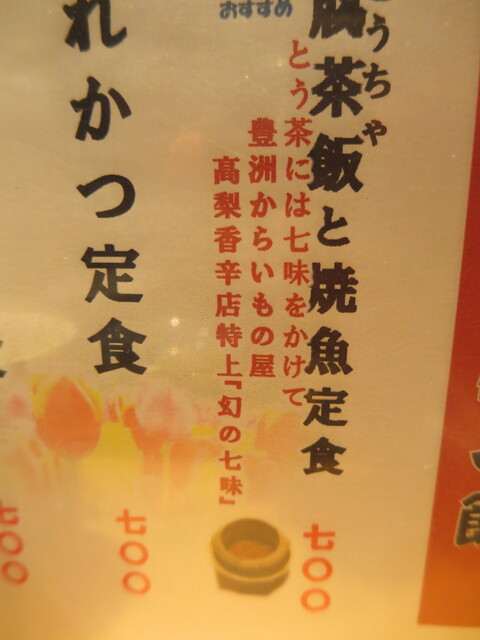 うちゃ
腐茶飯と焼魚定食
七〇〇
おすすめ
とう茶には七味をかけて
豊洲からいもの屋
高梨香辛店特上『幻の七味』
れかつ定食
七〇〇
七〇〇